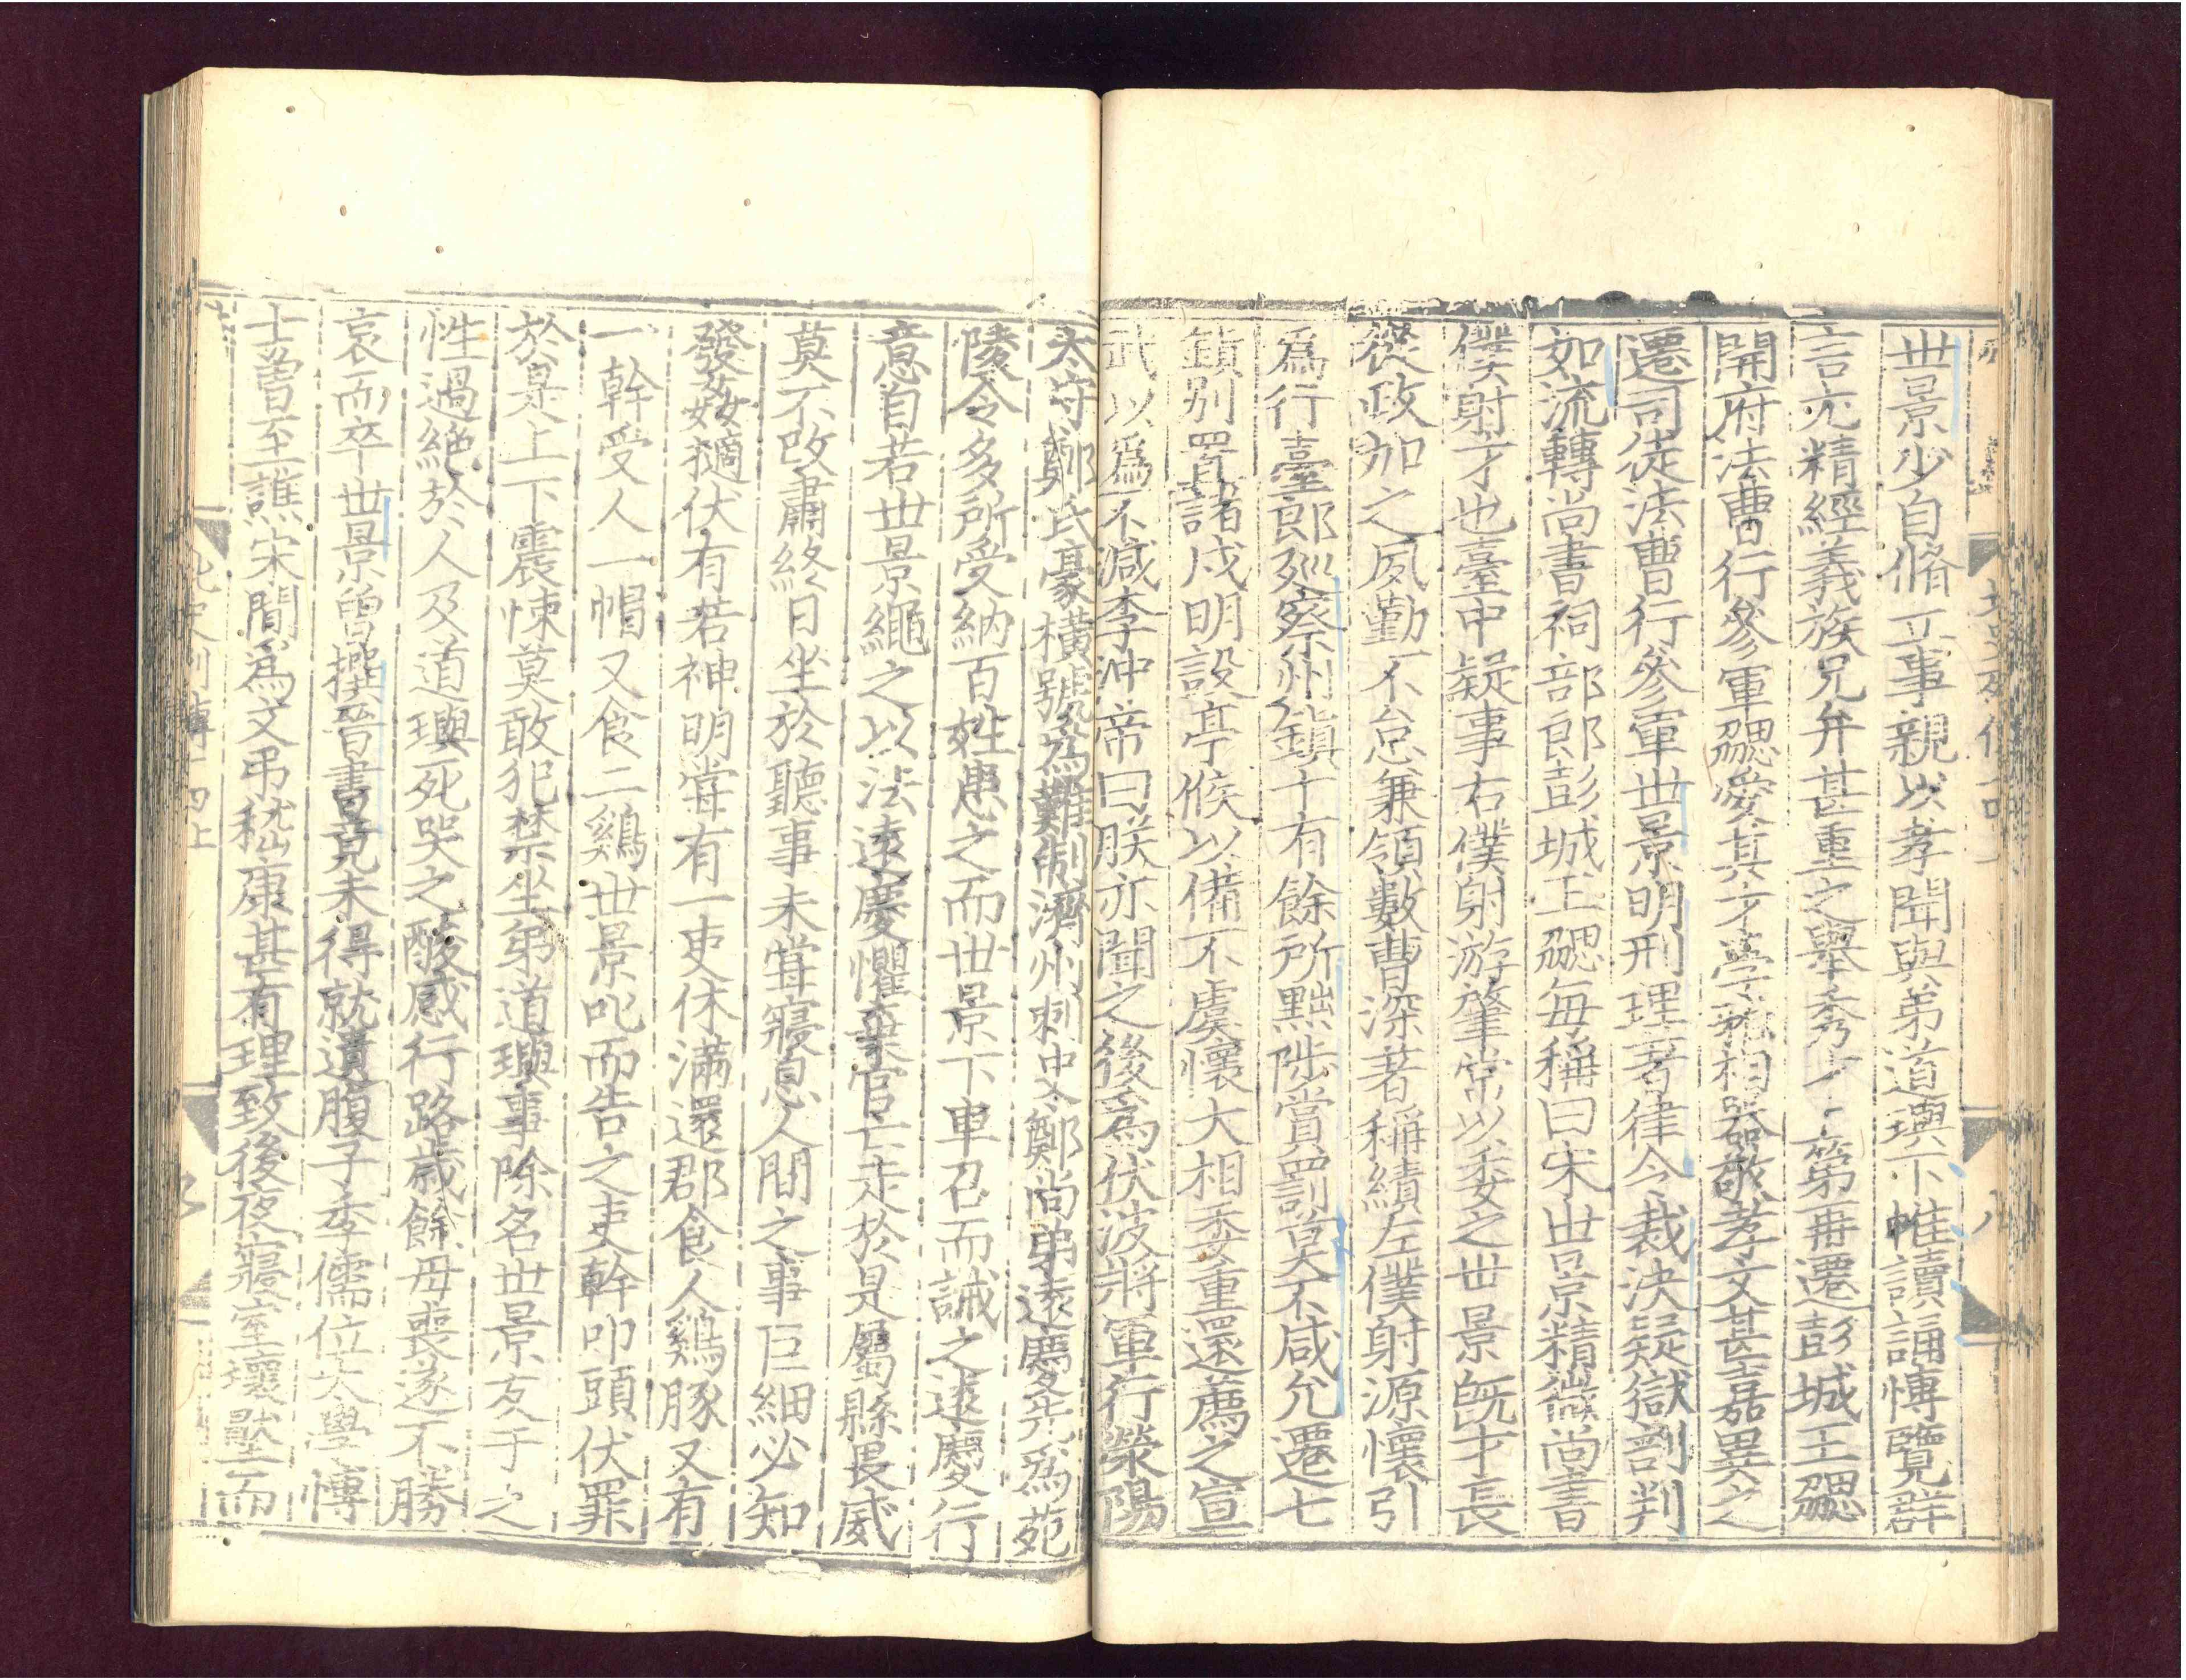 世景少自脩立事親以孝聞與弟道璵下帷讀誦愽覽群
言尤精經義族兄弁甚重之舉秀才上第再遷彭城王勰
開府法曹行參軍勰愛其才學雅相器敬孝文甚嘉異之
遷司徒法曹行參軍世景明刑理著律令裁决疑獄剖判
如流轉尚書祠部郎彭城王勰每稱曰宋世景精微尚書
僕射才也臺中疑事右僕射游肇常以委之世景旣才長
從政加之夙勤不怠兼領數曹深著稱績左僕射源懷引
爲行臺郎廵察州鎮十有餘所黜陟賞罰莫不咸允遷七
鎮別置諸戍明設亭候以備不虞懷大相委重還薦之宣
武以爲不減李沖帝曰朕亦聞之後爲伏波將軍行滎陽
太守鄭氏豪橫號爲難制濟州刺史鄭尚弟遠慶先爲苑
陵令多所受納百姓患之而世景下車召而誡之遠慶行
意自若世景繩之以法遠慶懼弃官亡走於是屬縣畏威
莫不改肅終日坐於聽事未甞寢息人間之事巨細必知
發姦擿伏有若神明甞有一吏休滿還郡食人鷄豚又有
一幹受人一帽又食二鷄世景叱而告之吏幹叩頭伏罪
於是上下震悚莫敢犯禁坐弟道璵事除名世景友于之
性過絶於人及道璵死哭之酸感行路歲餘母喪遂不勝
哀而卒世景曾撰晉書竟未得就遺腹子季儒位太學愽
士曾至譙宋間爲文弔嵇康甚有理致後夜寢室壞壓而
北史列傳十四上